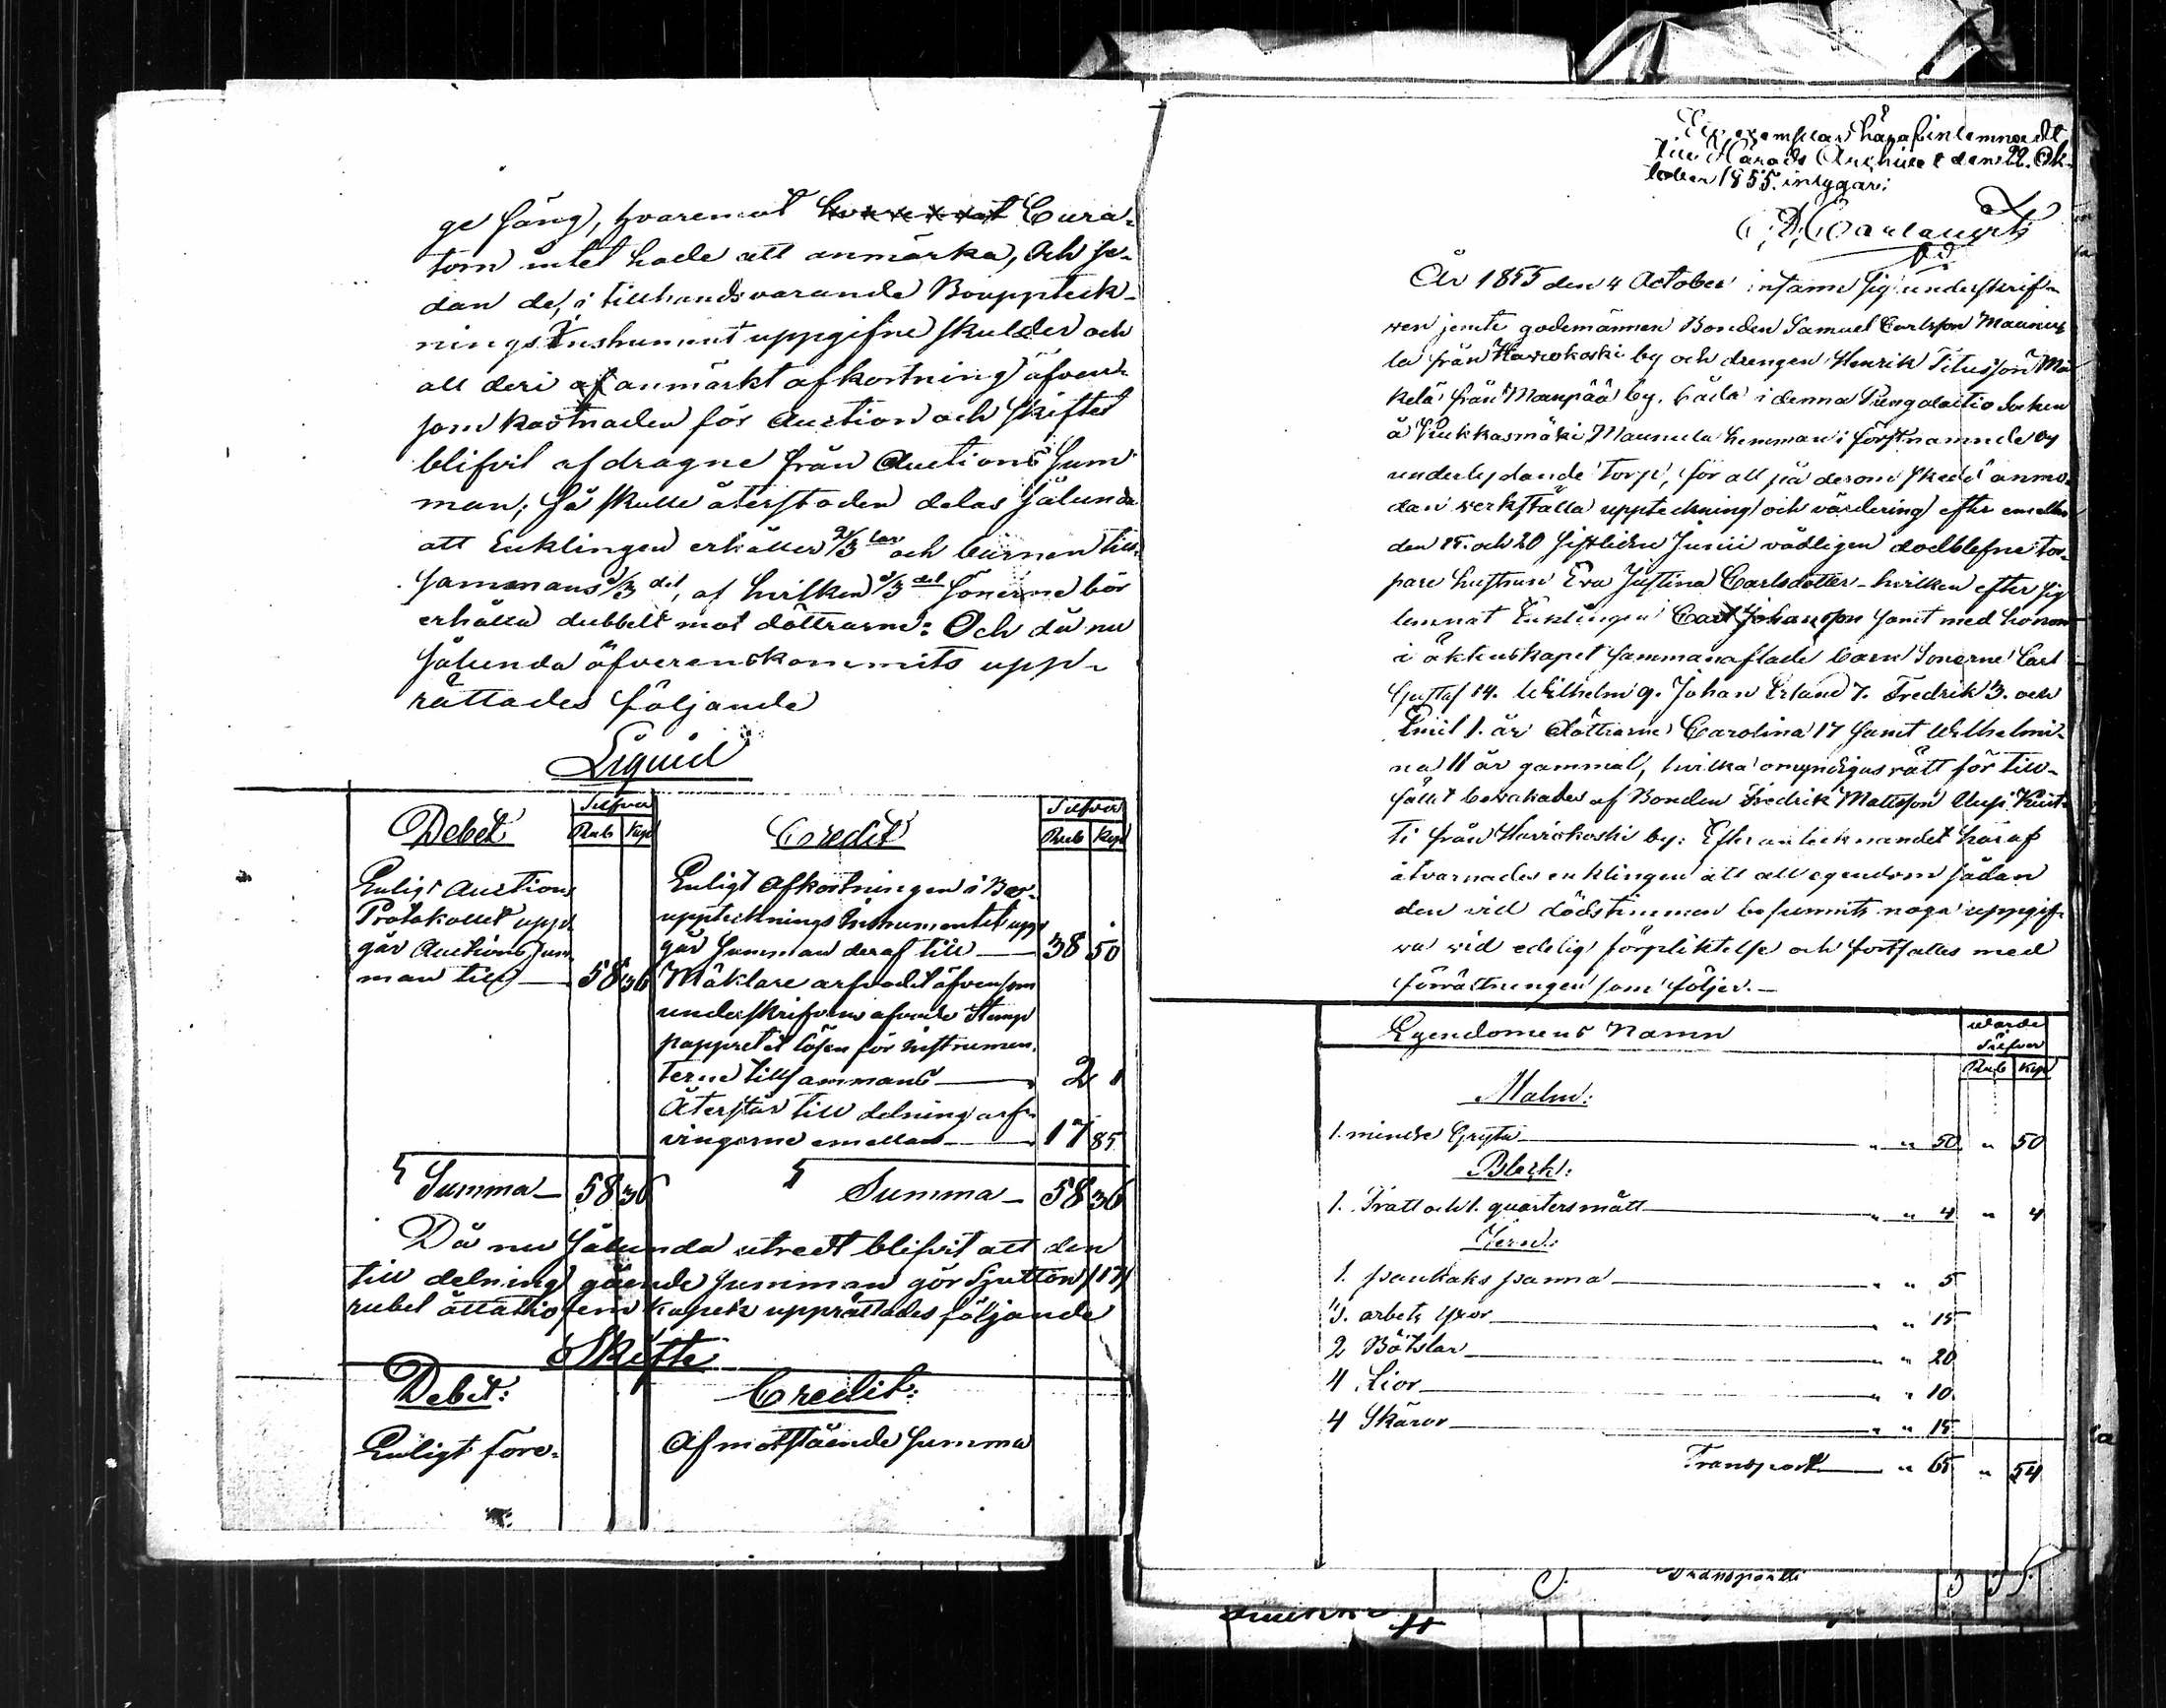 ge fäng, hvaremot Cura-
torn intet hade att anmärka, Och se-
dan de, i tillhandsvarande Bouppteck-
nings Instrument uppgifne skulder och
all deri anmärkt afkortning äfven
som kostnaden för Auction och skiftet
blifvit afdragne från Auctions Sum
man; så skulle återstoden delas sålunda
att Enklingen erhåller 2/3 lar och barnen till-
sammans 1/3 del, af hvilken 1/3 del Sönerne bör
erhålla dubbelt mot döttrarne: Och då nu
sålunda öfverenskommits upp-
rättades följande
Liquid
Debet
Silfver
Rub Kop
Credit
Silfver
Rub Kop
Enligt Auctions
Protokollet upp-
går Auctions Sum
man till 58 36
Enligt Afkortningen i Bo-
uppteknings Instrumentet upp-
går Summan deraf till 38 50
Mäklare arfvodet äfvensom
underskrifvens Stemp
pappret et lösen för instrumen
terne tillsammans 2 1
Återstår till delning arf-
vingarne emellan 17 85
Summa 58 36
Summa 58 36
Då nu sålunda utredt blifvit att den
till delning gående Summan gör Sjutton /17/
rubel åttatiofem kopek upprättades följande
Skifte
Debet:
Credit:
Enligt före-
Af motstående Summa
Ett exemplar häraf inlemnadt
till Härads Archivet den 22. Ok-
tober 1855. intygar:
År 1855 den 4 October infann sig underskrif-
ven jemte godemännen Bonden Samuel Carlsson Maunu
la från Harjokoski by och drengen Henrik Titusson Mä
kelä från Manpää by, båda i denna Pungalaitio Socken
å Kukkasmäki Maunula hemman i förstnämnde by
underlydande torp, för att på derom skedd anmo-
dan verkställa uppteckning och värdering efter emellan
den 15. och 20 sistliden Junii dödblefne tor-
pare hustrun Eva Justina Carlsdotter - hvilken efter sig
lemnat Enklingen Carl Johansson samt med honom
i äktenskapet sammanaflade barn Sönerne Carl
Gustaf 14. Wilhelm 9. Johan Erland 7. Fredrik 3. och
Emil 1. år döttrarne Carolina 17 samt Wilhelmi-
na 11 år gammal, hvilka omyndigas rätt för till-
fället bevakades af Bonden Fredrik Mattsson
ti från Harjokoski by: Efter antecknandet häraf
åtvarnades enklingen att all egendom sådan
den vid dödstimmen befunnits noga uppgif-
va vid edelig förpliktelse och fortsattes med
förrättningen som följer. -
Egendomens Namn
Wärde
Silfver
Rub Kop
Malm:
1. mindre Gryta " " 50 " 50
Bleck:
1. Tratt och 1. quartersmått " " 4 " 4
Jern:
1. pankaks panna " " 5
3. arbets yxor " " 15
2 Båtslar " " 20
4 Lior " " 10
4 Skäror " " 15
Transport " 65 " 54
Transportti